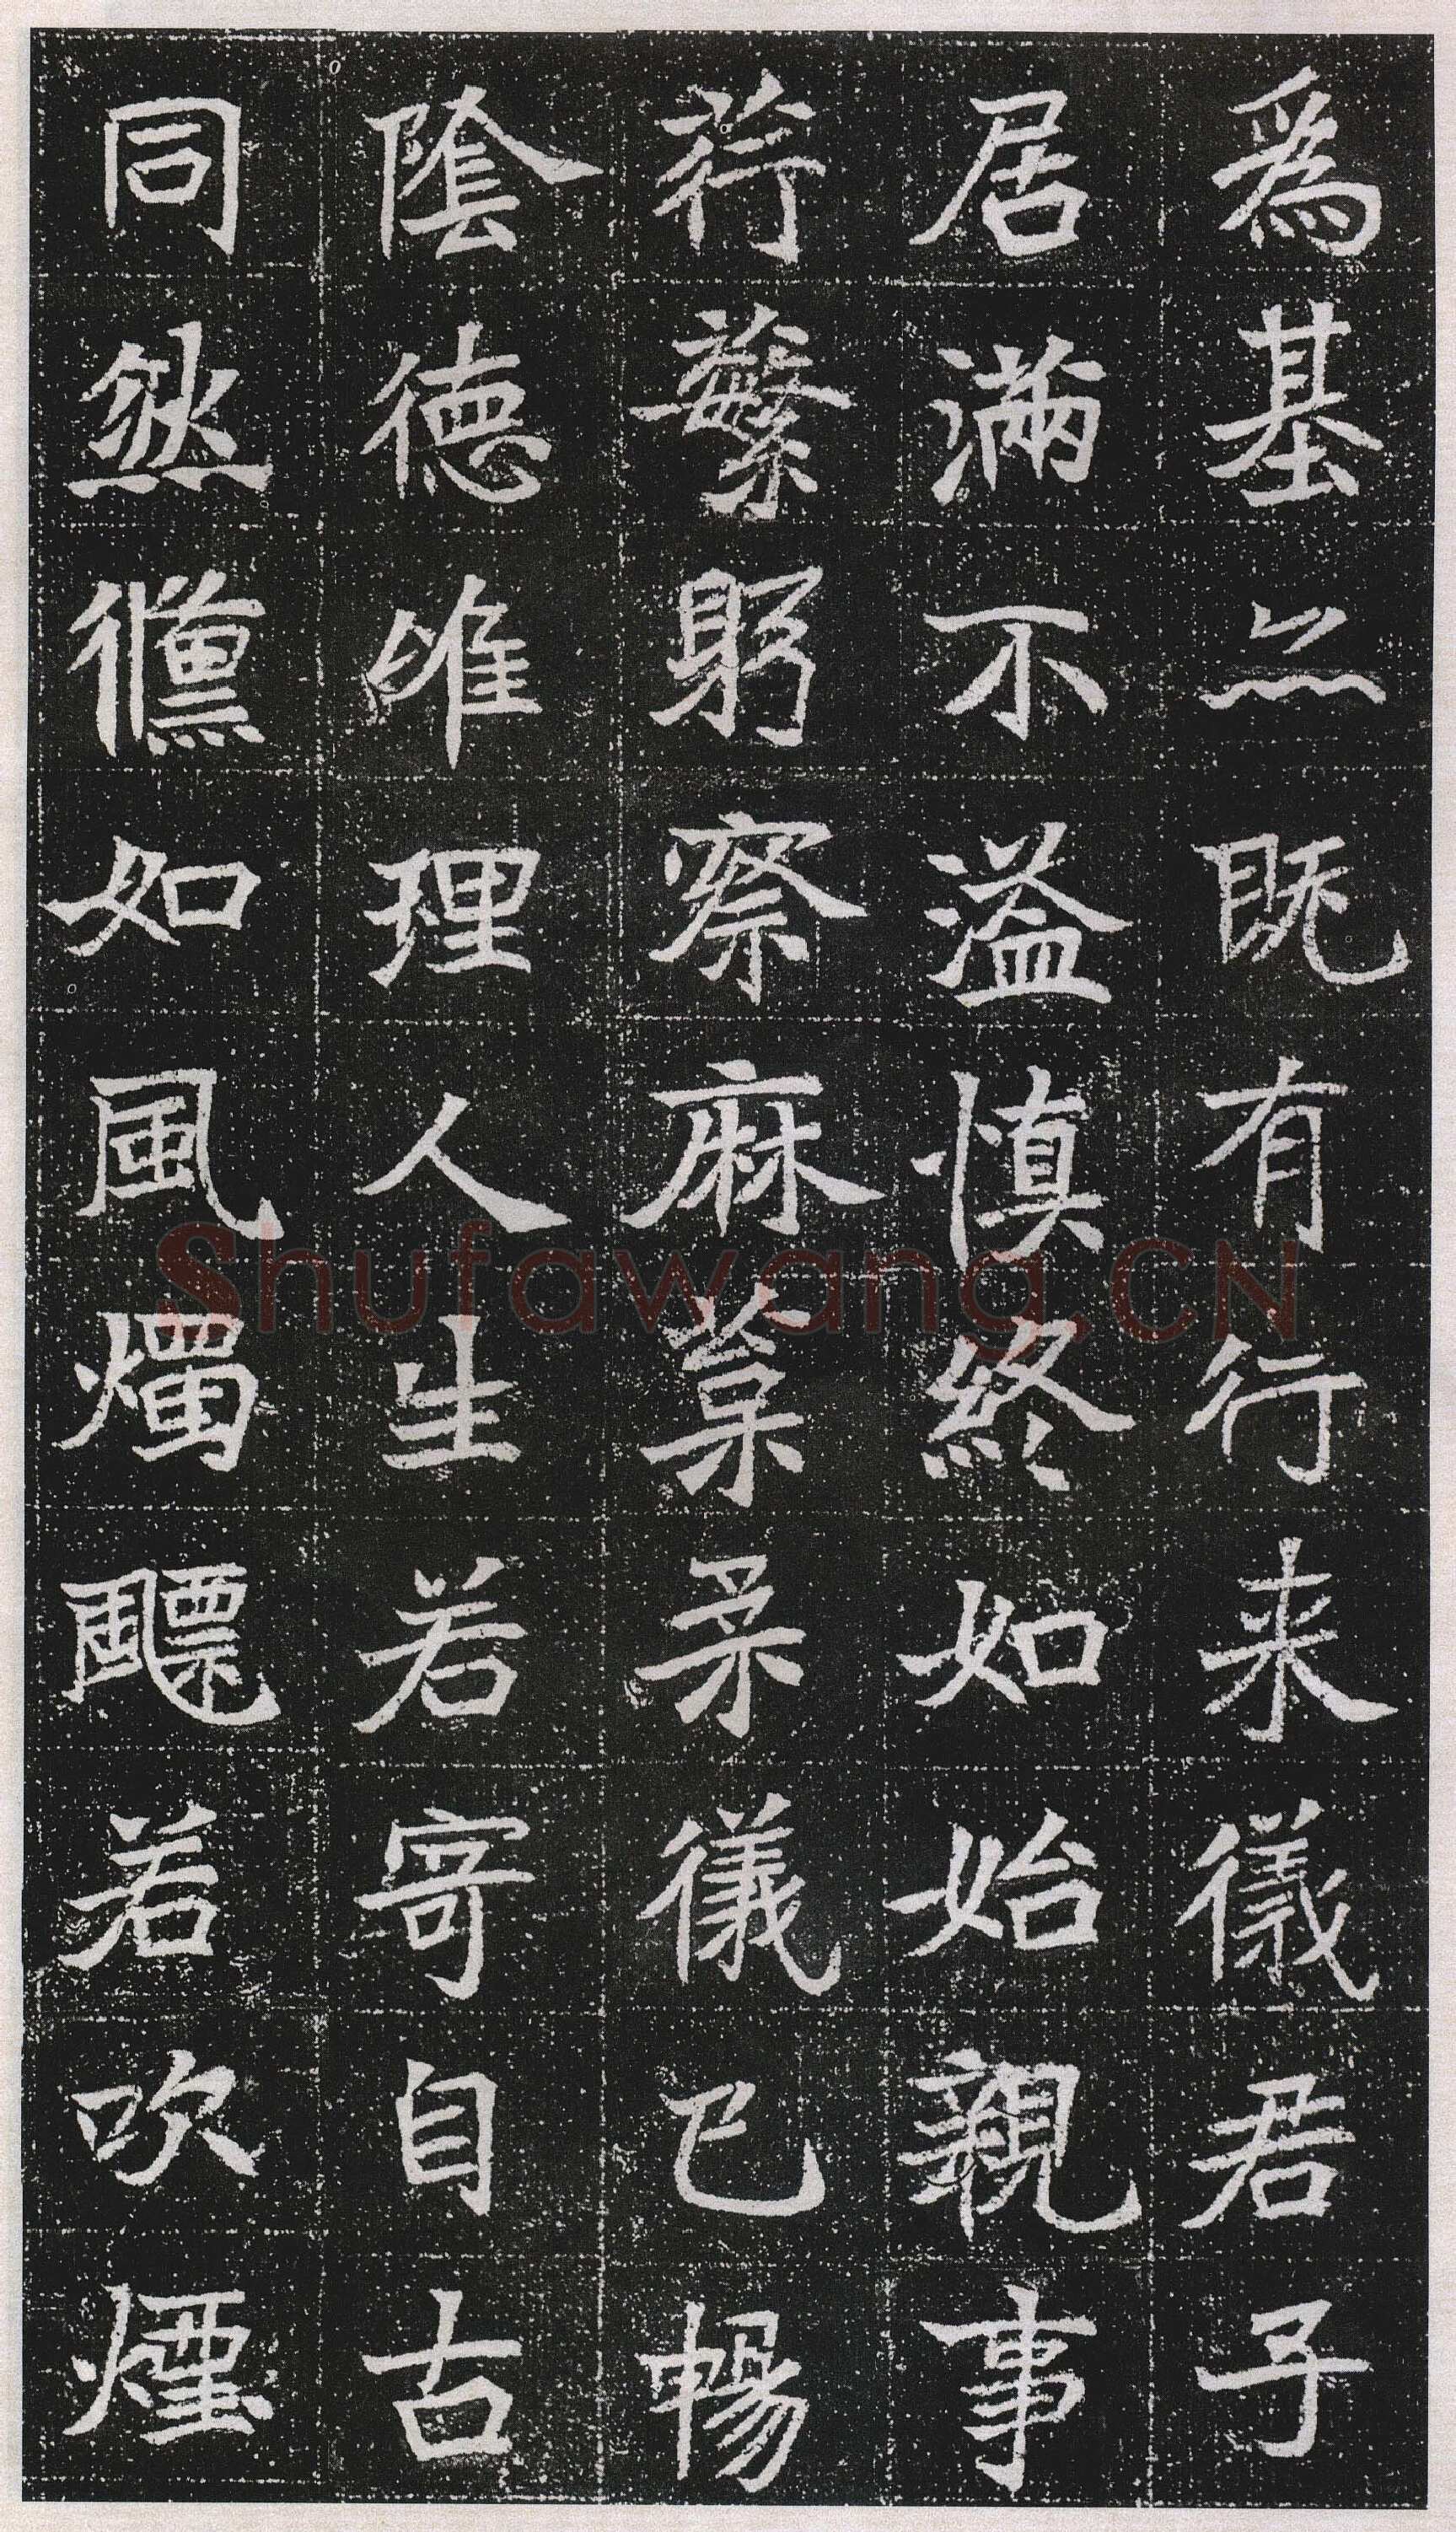 為基亦既有行来儀君子
居滿不溢慎終如始親事
荇蘩躬察麻葈柔儀已暢
陰德唯理人生若寄自古
同然儻如風燭飄若吹煙
Shufawang.CN